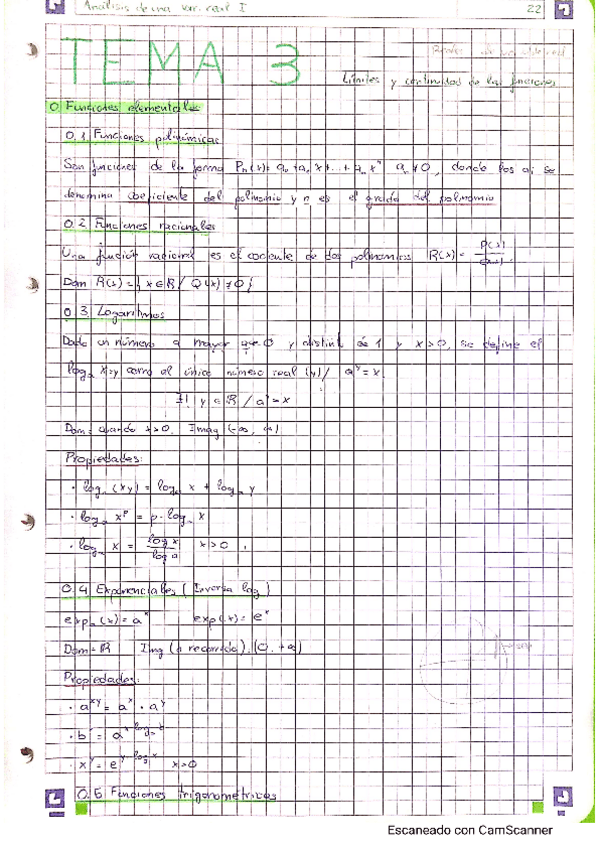 Análisis de una var. real I 22
TEMA 3
Límites y continuidad de las funciones
0. Funciones elementales
0.1 Funciones polinómicas
Son funciones de la forma Pn(x) = a₀ + a₁ x + ... + aₙ xⁿ aₙ ≠ 0, donde los ai se
denomina coeficiente del polinomio y n es el grado del polinomio
0.2 Funciones racionales
Una función racional es el cociente de dos polinomios R(x) = P(x)/Q(x).
Dom R(x) = { x ∈ ℝ / Q(x) ≠ 0 }
0.3 Logaritmos
Dado un número a mayor que 0 y distint de 1 y x > 0, se define el
logₐ x = y como al único número real (y) / aʸ = x.
∃! y ∈ ℝ / aʸ = x
Dom = cuando x > 0. Imag (-∞, ∞)
Propiedades:
· logₐ (xy) = logₐ x + logₐ y
· logₐ xᵖ = p · logₐ x
· logₐ x = log x / log a x > 0
0.4 Exponenciales (Inversa log)
expₐ(x) = aˣ exp(x) = eˣ
Dom = ℝ Img (o recorrido). (0, +∞)
Propiedades:
· aˣʸ = aˣ · aʸ
· xʸ = e^(y·log x) x > 0
0.5 Funciones trigonométricas
Escaneado con CamScanner